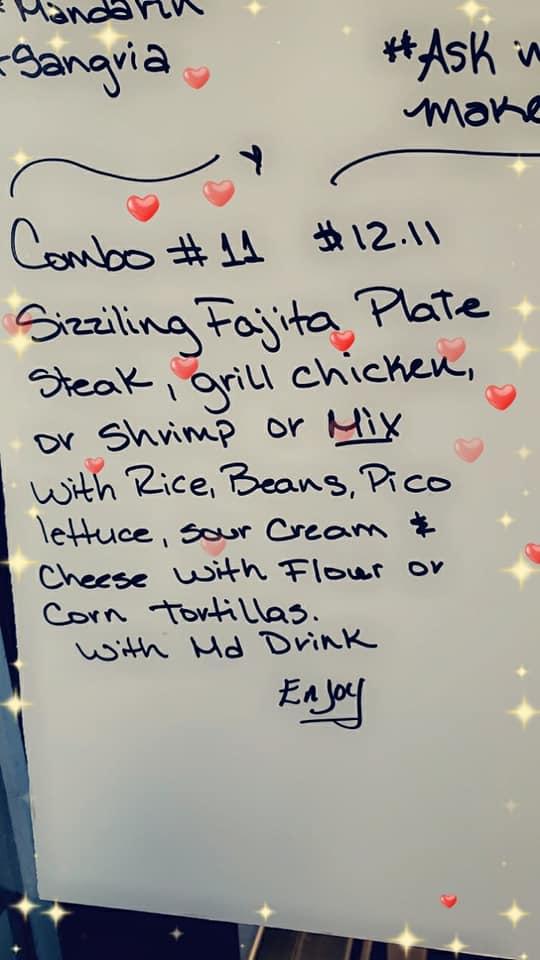 *Mandarin
-Sangria
**Ask w
make
Combo # 11 $12.11
Sizziling Fajita Plate
Steak, grill chicken,
or Shrimp or Mix
With Rice, Beans, Pico
lettuce, sour Cream &
Cheese with Flour or
Corn Tortillas.
With Md Drink
Enjoy